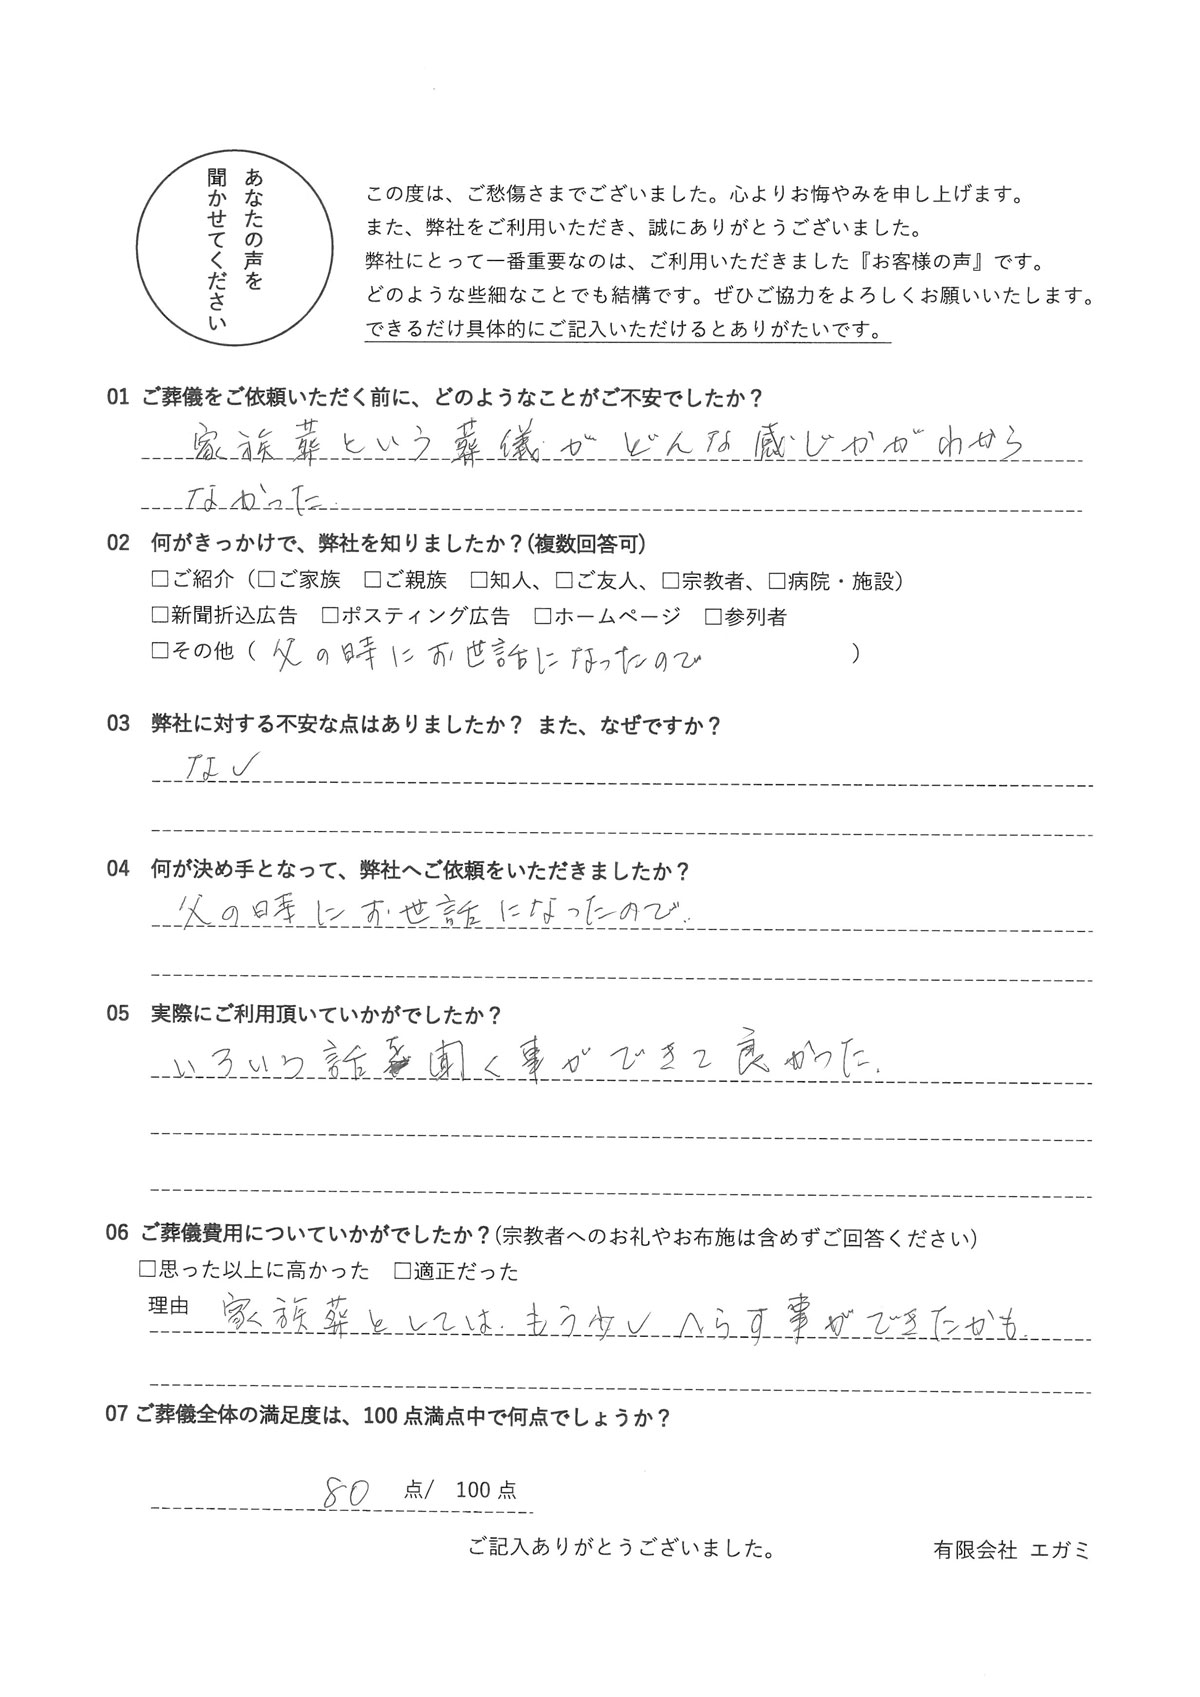 あなたの声を
聞かせてください
この度は、ご愁傷さまでございました。心よりお悔やみを申し上げます。
また、弊社をご利用いただき、誠にありがとうございました。
弊社にとって一番重要なのは、ご利用いただきました『お客様の声』です。
どのような些細なことでも結構です。ぜひご協力をよろしくお願いいたします。
できるだけ具体的にご記入いただけるとありがたいです。
01 ご葬儀をご依頼いただく前に、どのようなことがご不安でしたか？
家族葬という葬儀がどんな感じかがわからら
なかった.
02 何がきっかけで、弊社を知りましたか？(複数回答可)
□ご紹介（□ご家族 □ご親族 □知人、□ご友人、□宗教者、□病院・施設）
□新聞折込広告 □ポスティング広告 □ホームページ □参列者
□その他（ 父の時にお世話になったので ）
03 弊社に対する不安な点はありましたか？ また、なぜですか？
なし
04 何が決め手となって、弊社へご依頼をいただきましたか？
父の時にお世話になったので.
05 実際にご利用頂いていかがでしたか？
いろいろ話を聞く事ができて良かった.
06 ご葬儀費用についていかがでしたか？(宗教者へのお礼やお布施は含めずご回答ください)
□思った以上に高かった □適正だった
理由 家族葬としては.もう少しへらす事ができたかも.
07 ご葬儀全体の満足度は、100点満点中で何点でしょうか？
80 点/ 100点
ご記入ありがとうございました。
有限会社 エガミ